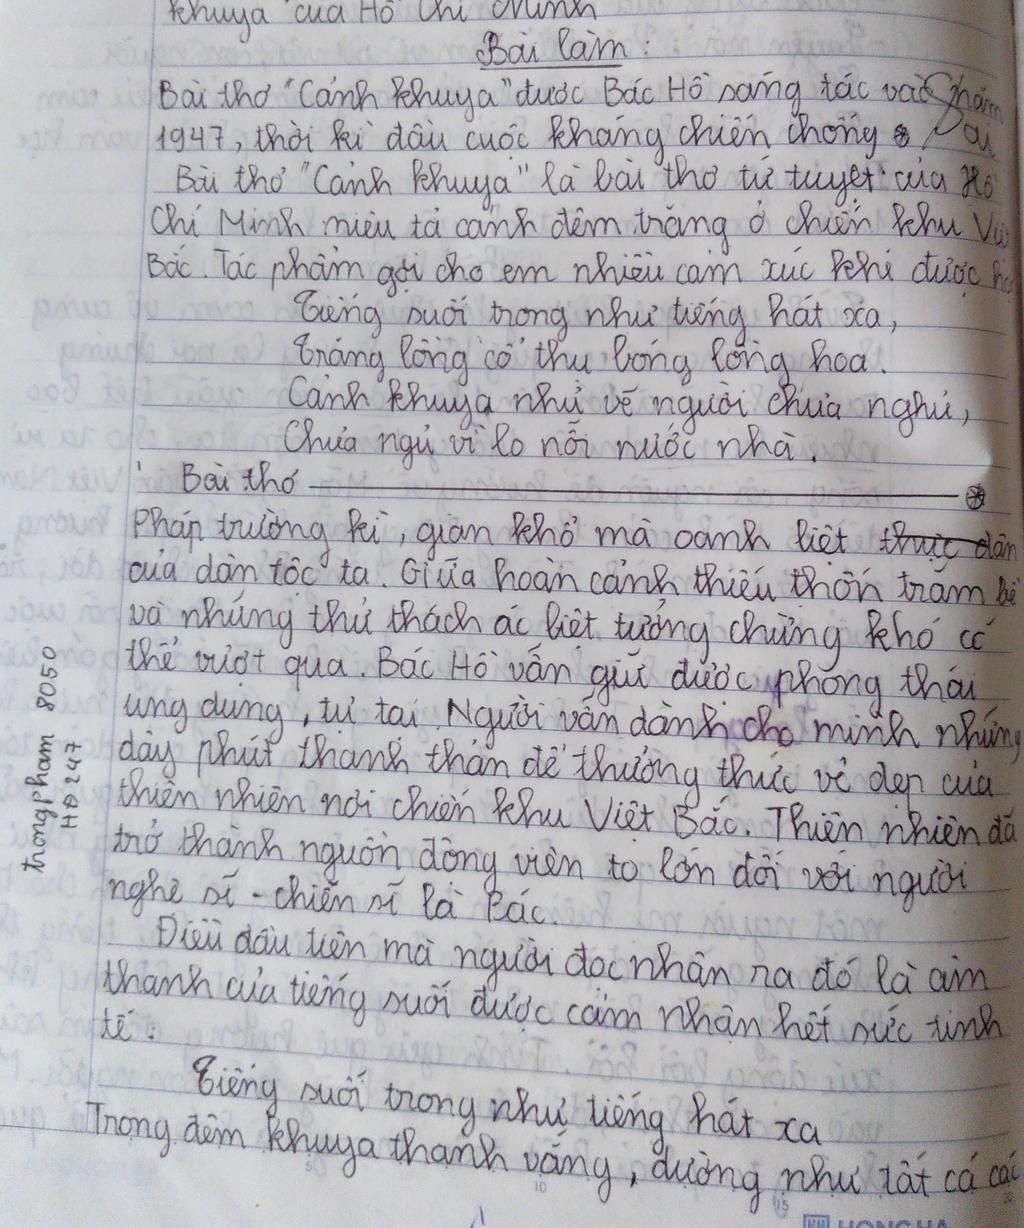 khuya của Hồ Chí Minh
Bài làm:
Bài thơ "Cảnh khuya" được Bác Hồ sáng tác vào năm
1947, thời kì đầu cuộc kháng chiến chống
Bài thơ "Cảnh khuya" là bài thơ tứ tuyệt của Hồ
Chí Minh miêu tả cảnh đêm trăng ở chiến khu Việt
Bắc. Tác phẩm gợi cho em nhiều cảm xúc khi được
Tiếng suối trong như tiếng hát xa,
Trăng lồng cổ thụ bóng lồng hoa.
Cảnh khuya như vẽ người chưa nghủ,
Chưa ngủ vì lo nỗi nước nhà.
Bài thơ
Pháp trường kì, gian khổ mà oanh liệt thực dân
của dân tộc ta. Giữa hoàn cảnh thiếu thốn trăm bề
và những thử thách ác liệt tưởng chừng khó có
thể vượt qua. Bác Hồ vẫn giữ được phong thái
ung dung, tự tại. Người vẫn dành cho mình những
dây phút thanh thản để thưởng thức vẻ đẹp của
thiên nhiên nơi chiến khu Việt Bắc. Thiên nhiên đã
trở thành nguồn động viên to lớn đối với người
nghệ sĩ - chiến sĩ là Bác.
Điều đầu tiên mà người đọc nhận ra đó là âm
thanh của tiếng suối được cảm nhận hết sức tinh
tế:
Tiếng suối trong như tiếng hát xa
Trong đêm khuya thanh vắng, dường như tất cả các
trongpham 8050
HĐ247
HONG HA